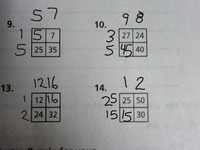 9. 5 7
1 5 7
5 25 35
10. 9 8
3 27 24
5 45 40
13. 12 16
1 12 16
2 24 32
14. 1 2
25 25 50
15 15 30